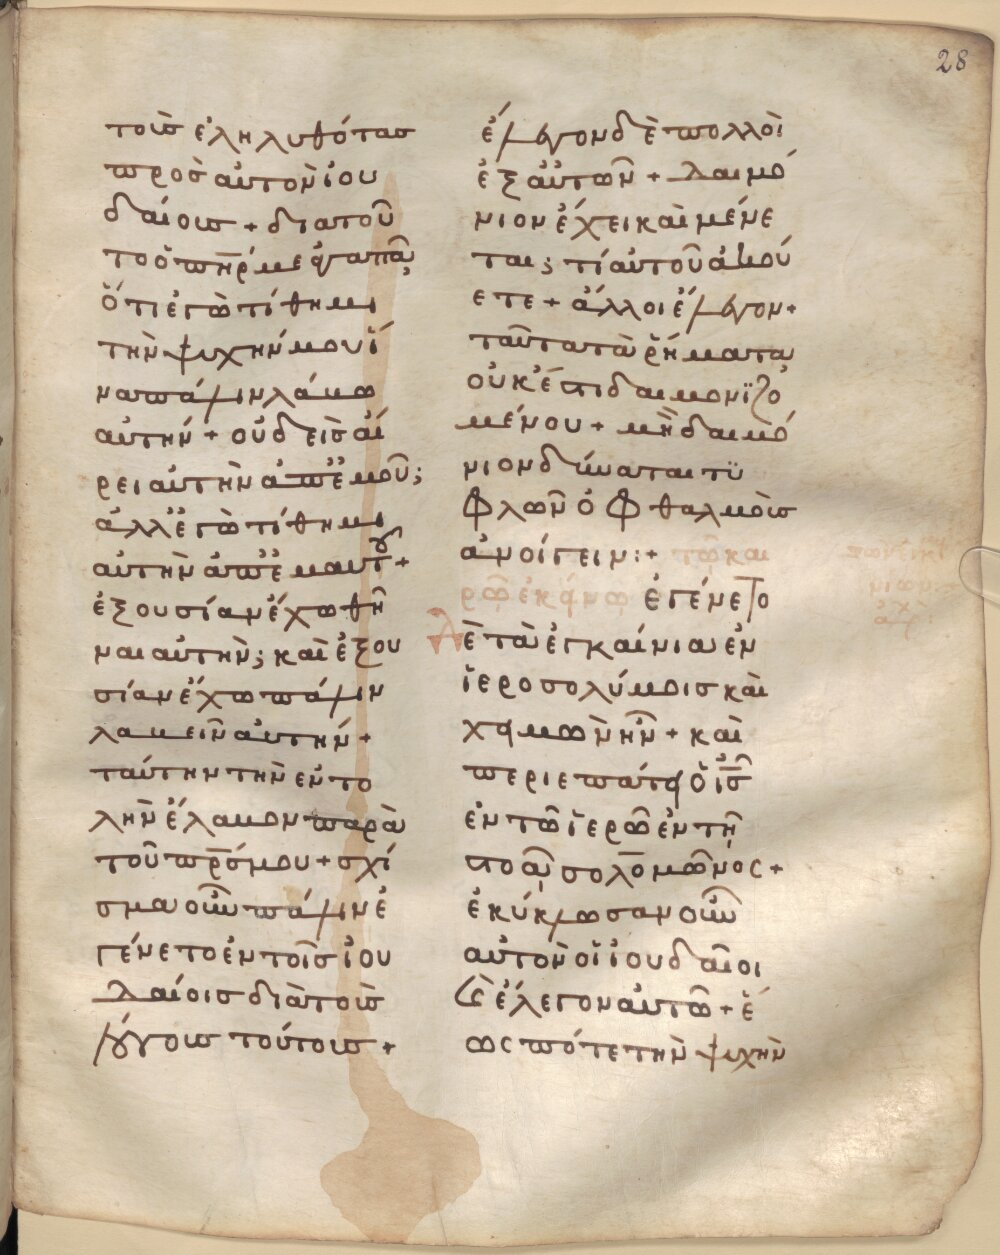 28
τοὺσ ἐληλυθότασ
πρὸσ αὐτὸν ἰου
δαίουσ + διατοῦ
το ὁ πη̅ρ με ἀγαπᾶ
ὅτι ἐγὼ τίθημι
τὴν ψυχήν μου ἵ
να πάλιν λάβω
αὐτήν + οὐδεὶσ αἴ
ρει αὐτὴν ἀπ' ἐμοῦ;
ἀλλ' ἐγὼ τίθημι
αὐτὴν ἀπ' ἐμαυτοῦ +
ἐξουσίαν ἔχω θῆ
ναι αὐτὴν; καὶ ἐξου
σίαν ἔχω πάλιν
λαβεῖν αὐτήν +
ταύτην τὴν ἐντο
λὴν ἔλαβον παρὰ
τοῦ πρ̅σ μου + σχί
σμα οὖν πάλιν ἐ
γένετο ἐν τοῖσ ἰου
δαίοισ διὰ τοὺσ
λόγουσ τούτουσ +
ἔλεγον δὲ πολλοὶ
ἐξ αὐτῶν + δαιμό
νιον ἔχει καὶ μένε
ται; τί αὐτοῦ ἀκού
ετε + ἄλλοι ἔλεγον +
ταῦτα τὰ ῥήματα
οὐκ ἔστι δαιμονϊζο
μένου + μὴ δαιμό
νιον δύναται τϋ
φλῶν ὀφθαλμοὺσ
ἀνοίγειν :+ τῶ και
ρῶ ἐκείνω ἐγένετο
ὲ τὰ ἐγκαίνια ἐν
ἱεροσολύμοισ καὶ
χειμὼν ἦν + καὶ
περιεπάτει ὁ ι̅σ
ἐν τῶ ἱερῶ ἐν τῆ
στοᾶ σολομῶνοσ +
ἐκύκλωσαν οὖν
αὐτὸν οἱ ἰουδαῖοι
ϗ ἔλεγον αὐτῶ + ἕ
ωσ πότε τὴν ψυχὴν